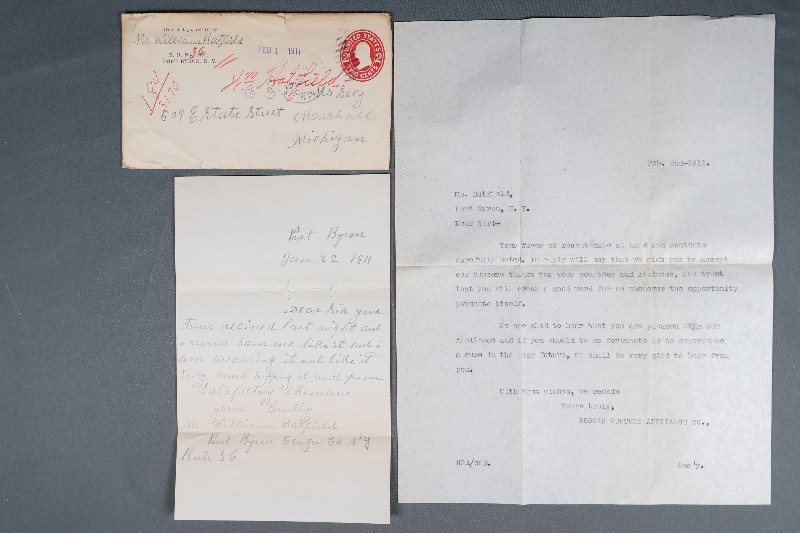 Mr. William Hatfield
R. D. No. 36
PORT BYRON, N. Y.
FEB 1 1911
UNITED STATES
TWO CENTS
Wm Hatfield
509 E State Street
Marshall
Michigan
Port Byron
Jan 22 1911
Dear Sir your
truss recived last night and
never saw one like it and i
am wearing it and like it
very much hoping it will prove
Satisfactory & Remain
yours Truley
Mr William Hatfield
Port Byron Co N Y
Rute 36
Feb. 2nd-1911.
Mr. Hatfield,
Port Byron, N. Y.
Dear Sir:-
Your favor of recent date at hand and contents
carefully noted. In reply will say that we wish you to accept
our sincere thanks for your courtesy and kindness, and trust
that you will speak a good word for us whenever the opportunity
presents itself.
We are glad to hear that you are pleased with our
Appliance and if you should be so fortunate as to experience
a cure in the near future, we shall be very glad to hear from
you.
With best wishes, we remain
Yours truly,
BROOKS RUPTURE APPLIANCE CO.,
Sec'y.